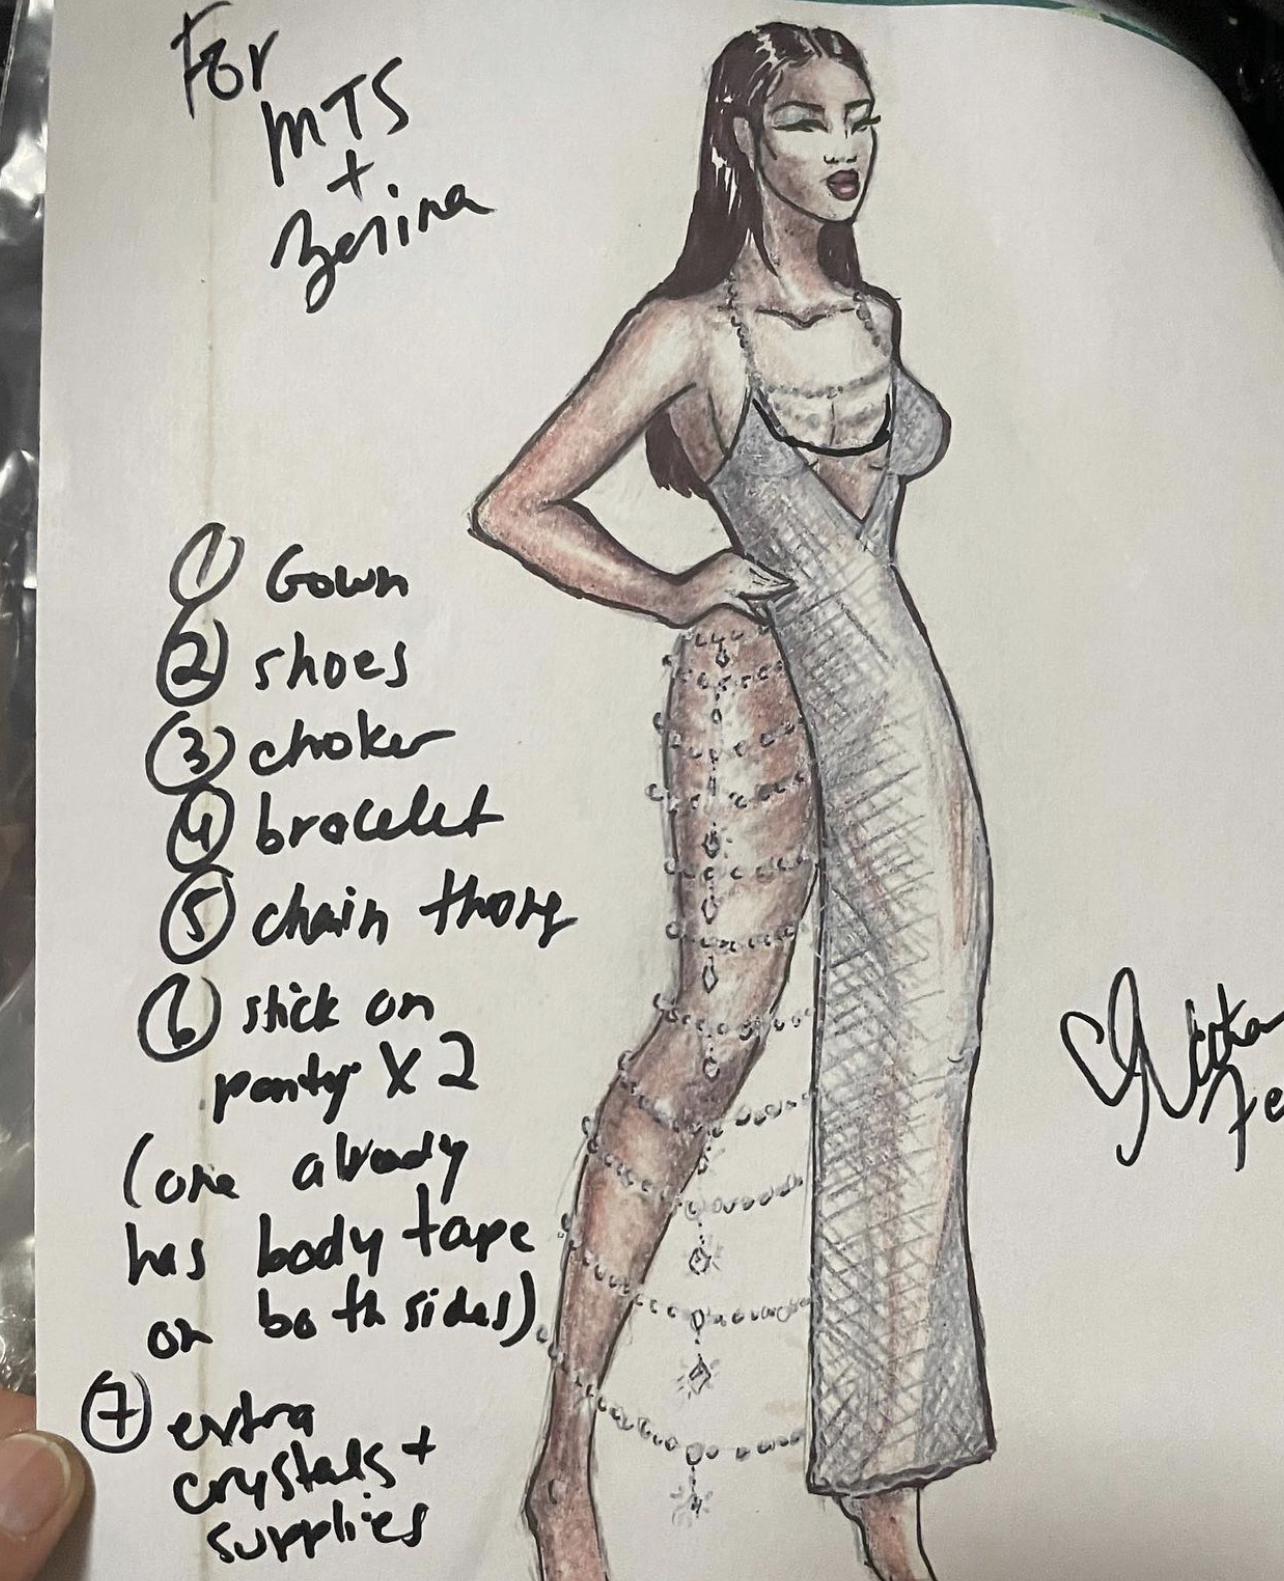 For
MTS
+
Zerina
1 Gown
2 shoes
3 choker
4 bracelet
5 chain thong
6 stick on
panty X 2
(one already
has body tape
on both sides)
7 extra
crystals +
supplies